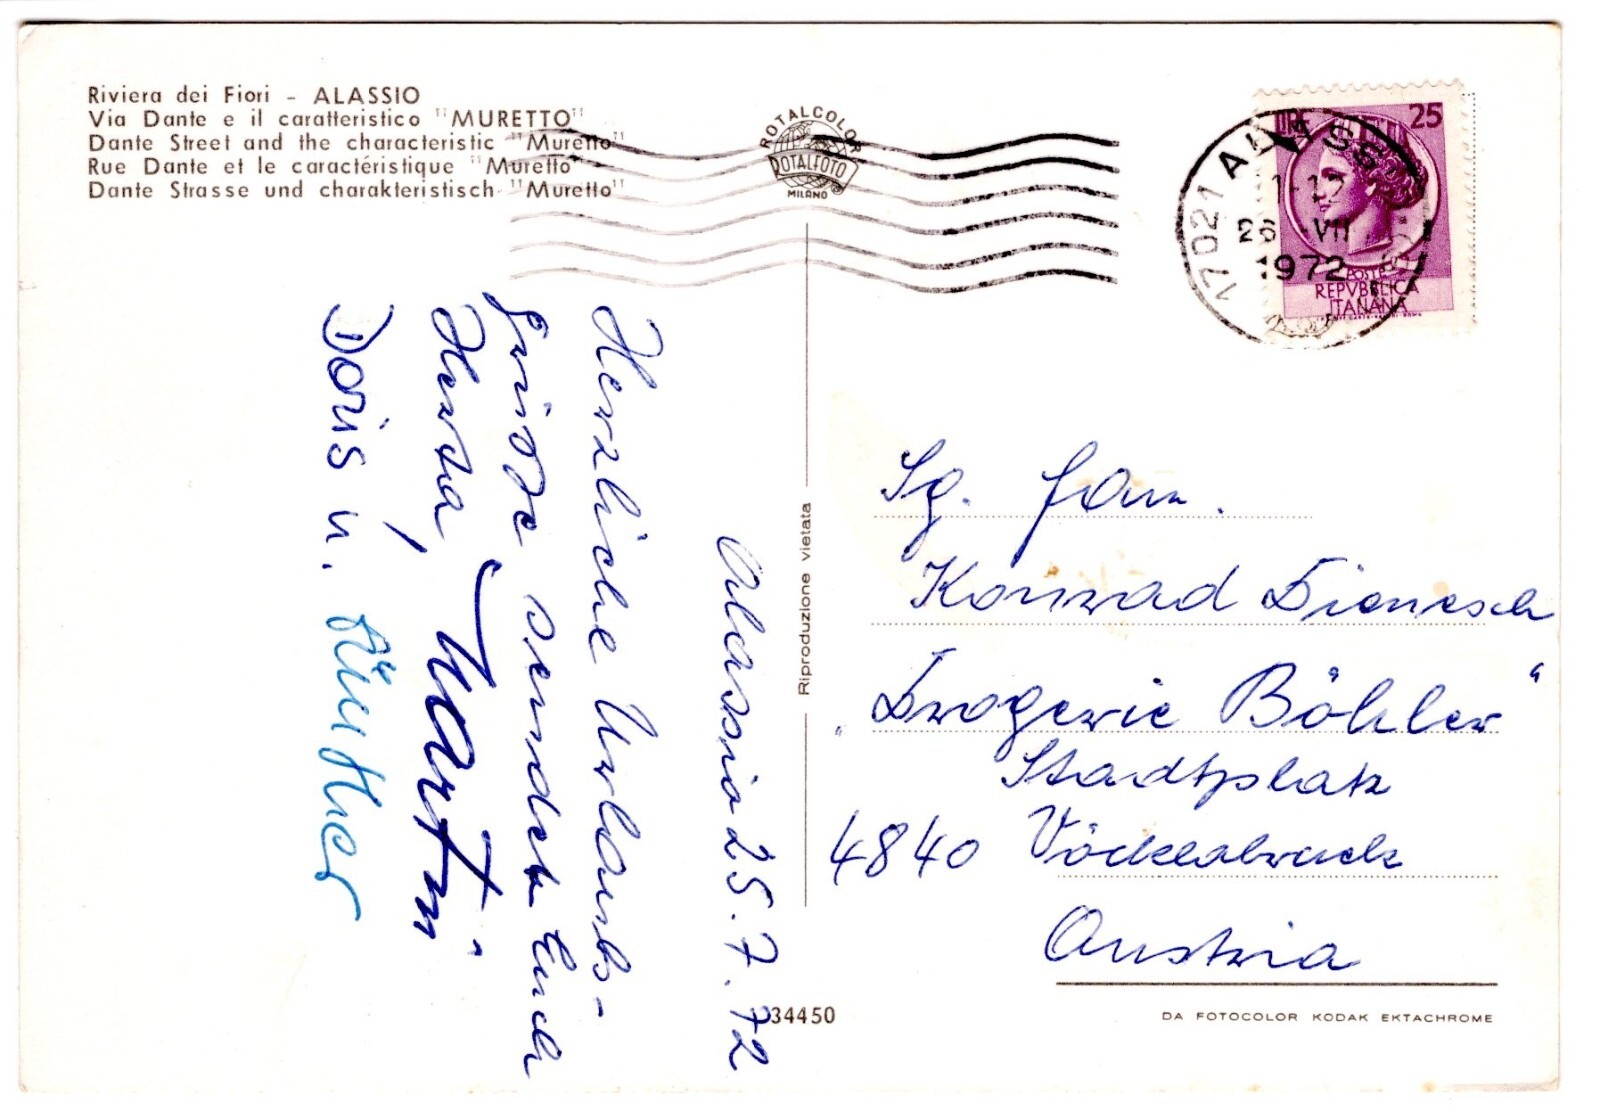 Riviera dei Fiori - ALASSIO
Via Dante e il caratteristico "MURETTO"
Dante Street and the characteristic "Muretto"
Rue Dante et le caractéristique "Muretto"
Dante Strasse und charakteristisch "Muretto"
ROTALCOLOR
ROTALFOTO
MILANO
LIRE 25
POSTE
REPVBBLICA
ITALIANA
17021 ALASSIO
26 VII
1972
Alassio 25.7.72
Herzliche Urlaubs-
grüsse sendet Euch
Herta, Martin,
Doris u. Günther
Riproduzione vietata
Sg. Fam.
Konrad Dienesch
„Drogerie Böhler“
Stadtplatz
4840 Vöcklabruck
Austria
34450
DA FOTOCOLOR KODAK EKTACHROME